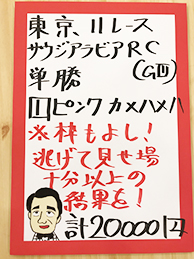 東京、11レース
サウジアラビアRC
単勝 (GⅢ)
1ピンクカメハメハ
※枠もよし！
逃げて見せ場
十分以上の
結果を！
計20000円